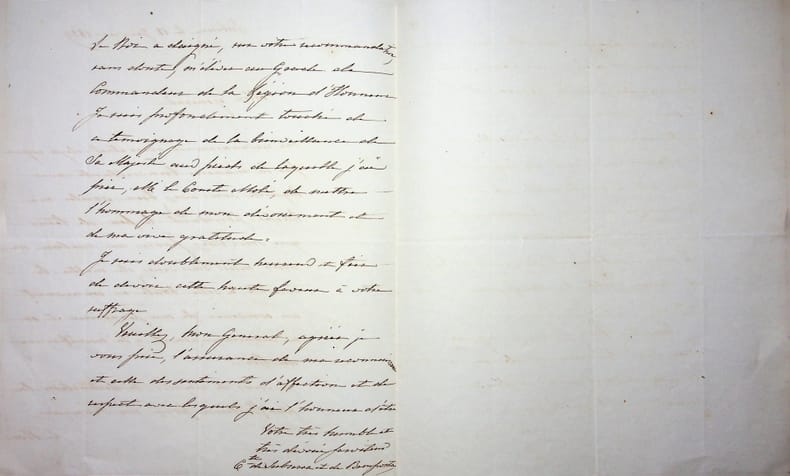 Le Roi a daigné, sur votre recommandation
sans doute, m'élever au Grade de
Commandeur de la Légion d'Honneur
Je suis profondement touché de
ce temoignage de la bienveillance de
Sa Majesté aux pieds de laquelle j'ai
prié, Mr le Comte Molé, de mettre
l'hommage de mon dévouement et
de ma vive gratitude.
Je suis doublement heureux et fier
de devoir cette haute faveur à votre
suffrage
Veuillez, Mon General, agréer je
vous prie, l'assurance de ma reconnaiss
et celle des sentiments d'affection et de
respect avec lesquels j'ai l'honneur d'être
Votre très humble et
très dévoué serviteur
Cte de et de